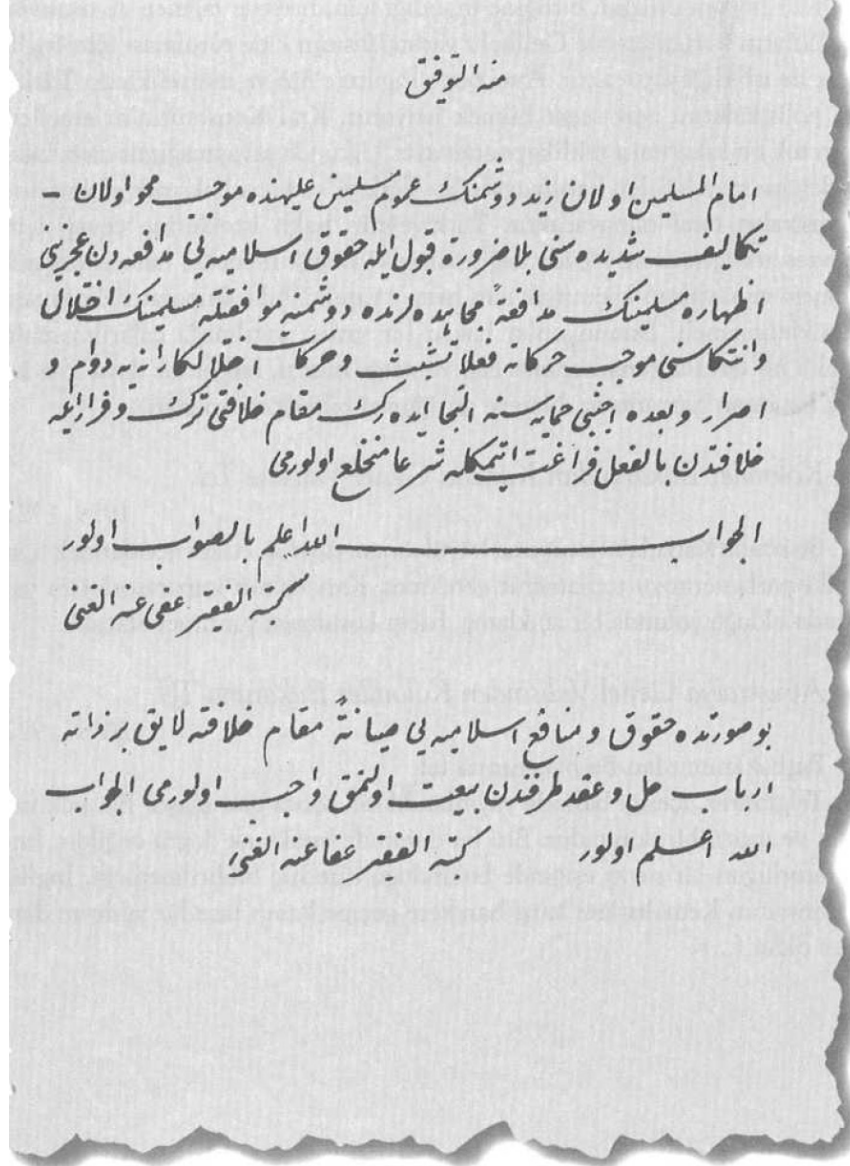 منه التوفيق
امام المسلمین اولان زید دوشمنك عموم مسلمین علیهنده موجب محو اولان -
تكالیف شدیده سنی بلا ضرورة قبول ایله حقوق اسلامیه یی مدافعه دن عجزینی
اظهار و مسلمینك مدافعهٔ مجاهده لرنده دوشمنه موافقتله مسلمینك اختلال
وانتكاسنی موجب حركاته فعلا تشبث و حركات اختلالكارانه یه دوام و
اصرار و بعده اجنبی حمایه سنه التجا ایده رك مقام خلافتی ترك و فرار ایله
خلافتدن بالفعل فراغت ایتمكله شرعا منخلع اولورمی
الجواب الله اعلم بالصواب اولور
كتبه الفقیر عفی عنه الغنی
بو صورتده حقوق و منافع اسلامیه یی صیانةً مقام خلافته لایق بر ذاته
ارباب حل و عقد طرفندن بیعت اولنمق واجب اولورمی الجواب
الله اعلم اولور كتبه الفقیر عفا عنه الغنی